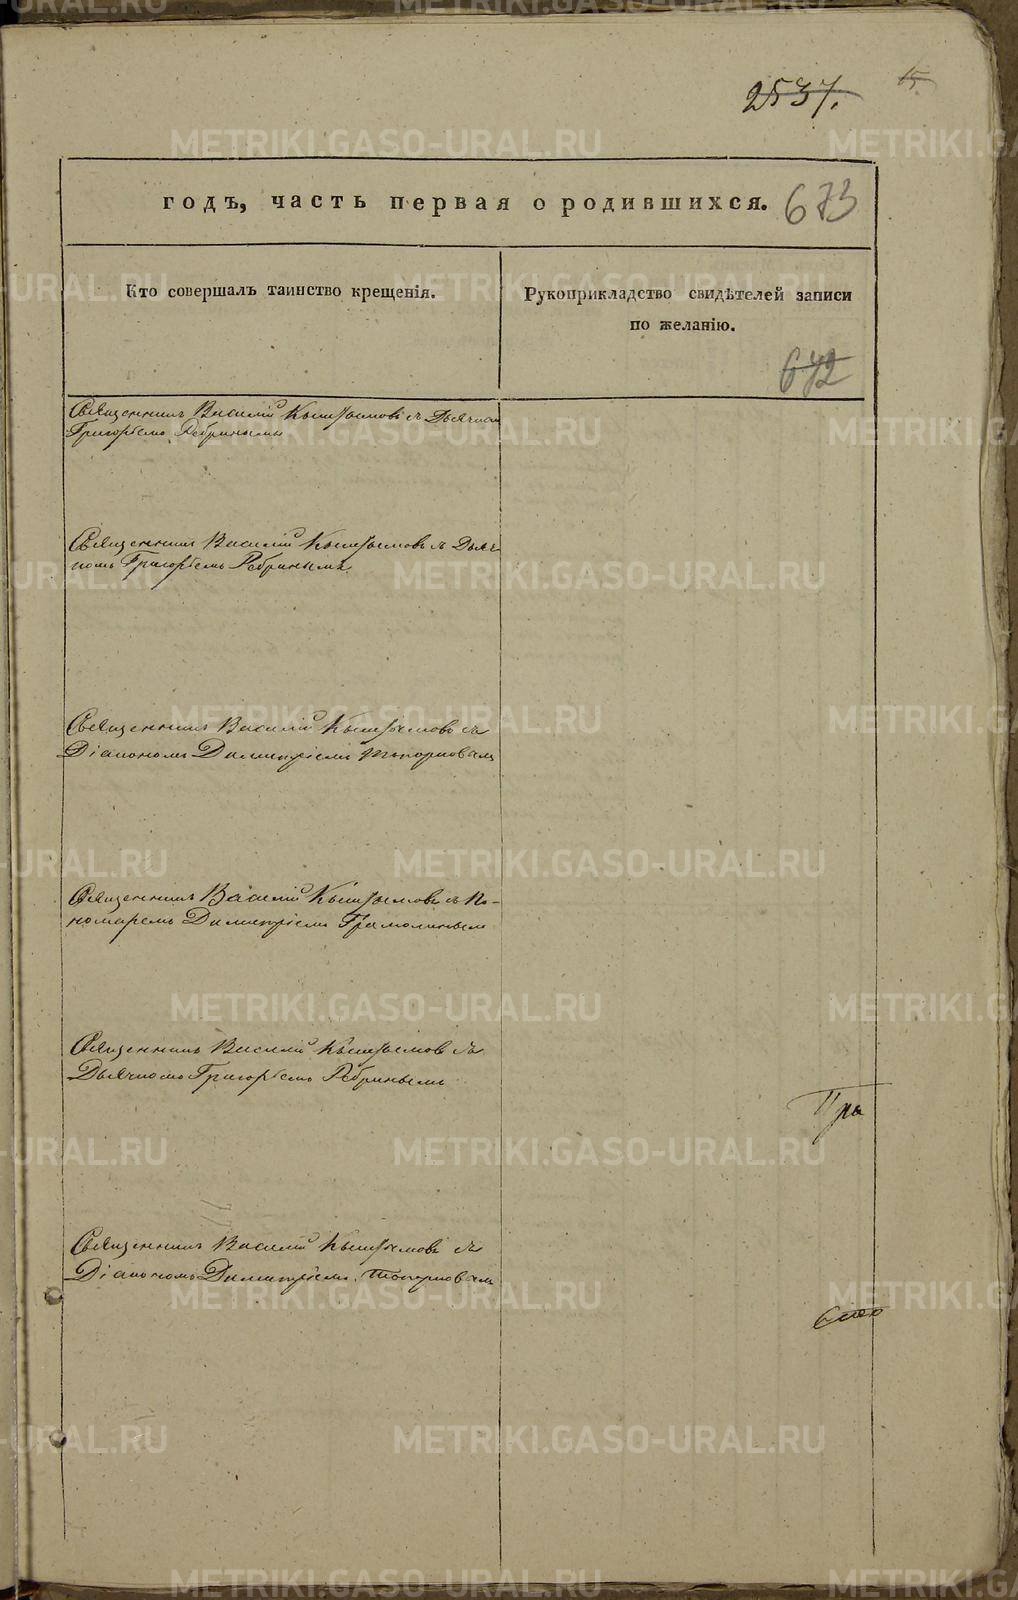 2537.
15
годъ, часть первая о родившихся.
673
Кто совершалъ таинство крещенія.
Рукоприкладство свидѣтелей записи
по желанію.
672
Священникъ Василій съ Дьячкомъ
Григоріемъ Ребринымъ
Священникъ Василій съ Дьяч-
комъ Григоріемъ Ребринымъ
Священникъ Василій съ
Діакономъ Димитріемъ Топорковымъ
Священникъ Василій съ По-
номаремъ Димитріемъ
Священникъ Василій съ
Дьячкомъ Григоріемъ Ребринымъ
Священникъ Василій съ
Діакономъ Димитріемъ Топорковымъ
METRIKI.GASO-URAL.RU